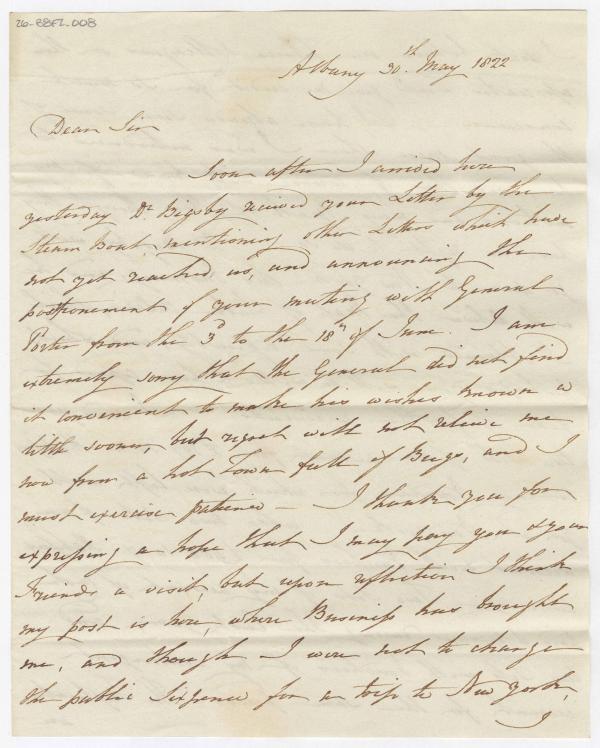 26-88F2.008
Albany 30th. May 1822
Dear Sir
Soon after I arrived here
yesterday Dr. Bigsby received your Letter by the
Steam Boat, mentioning other Letters which have
not yet reached us, and announcing the
postponement of your meeting with General
Porter from the 3d to the 18th of June. I am
extremely sorry that the General did not find
it convenient to make his wishes known a
little sooner, but regret will not relieve me
now from a hot Town full of Bugs, and I
must exercise patience — I thank you for
expressing a hope that I may pay you & your
Friends a visit, but upon reflection I think
my post is here, where Business has brought
me, and though I were not to charge
the public Sixpence for a trip to New York,
I